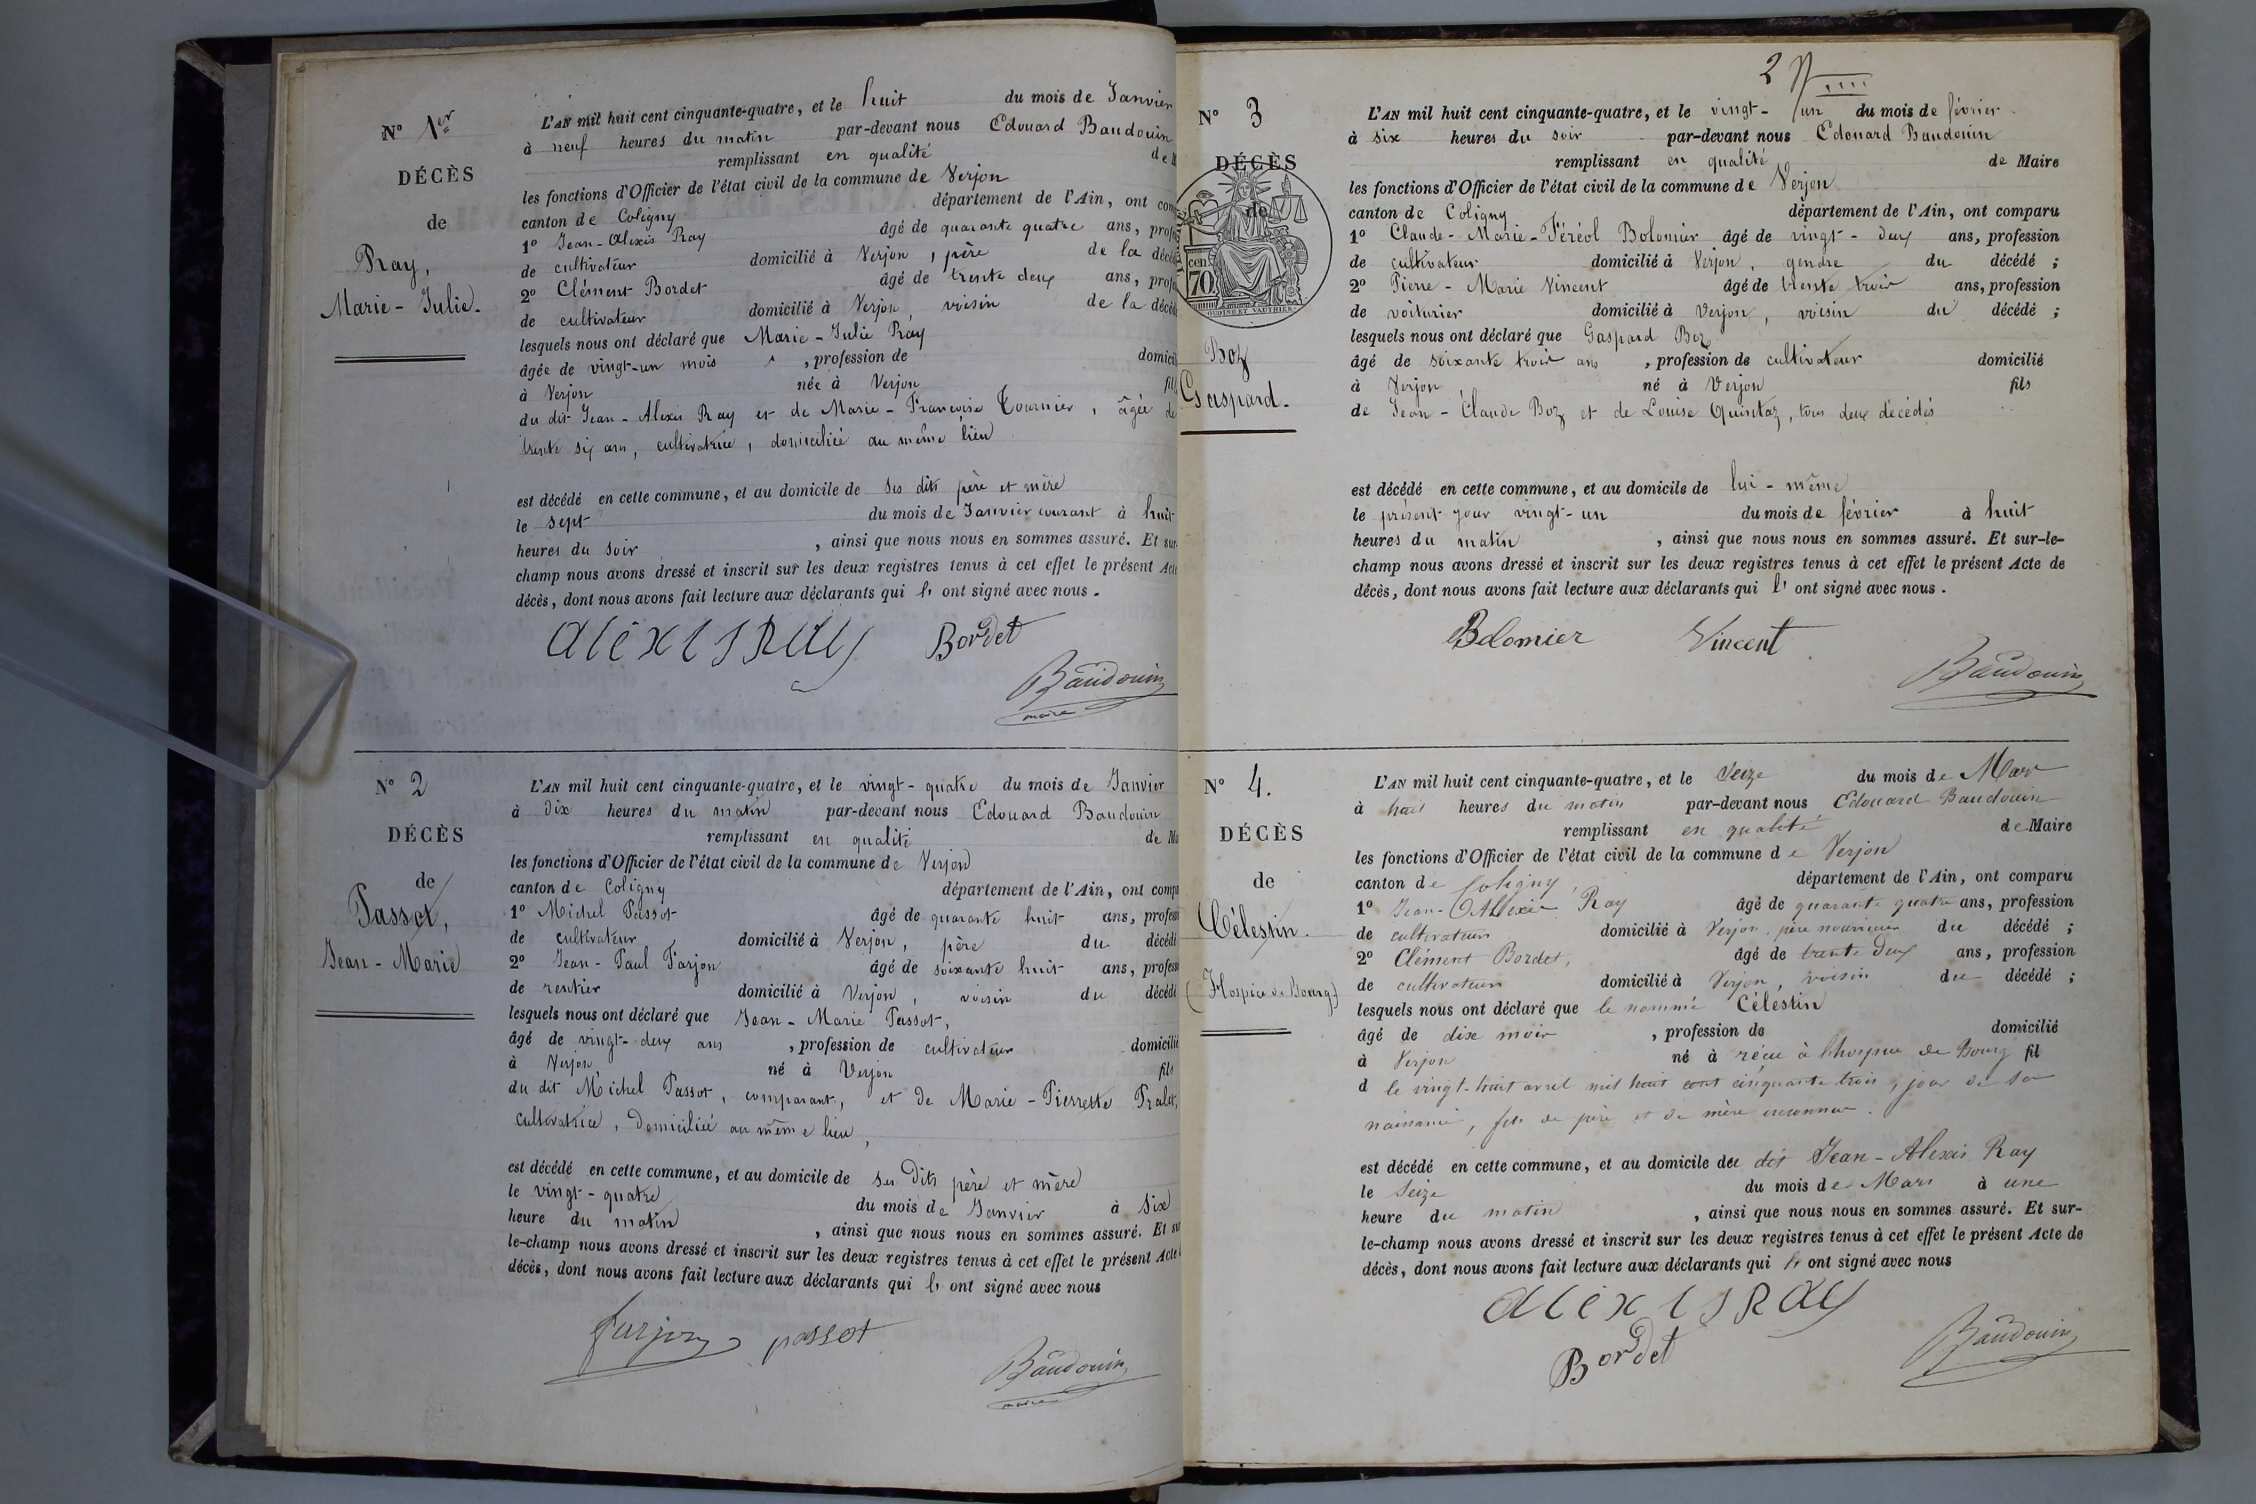 N° 1er
DÉCÈS
de
Ray,
Marie-Julie.
L'AN mil huit cent cinquante-quatre, et le huit du mois de Janvier
à neuf heures du matin par-devant nous Edouard Baudouin
remplissant en qualité de M
les fonctions d'Officier de l'état civil de la commune de Verjon
canton de Coligny département de l'Ain, ont com
1° Jean-Alexis Ray âgé de quarante quatre ans, profe
de cultivateur domicilié à Verjon, père de la décéd
2° Clément Bordet âgé de trente deux ans, profe
de cultivateur domicilié à Verjon, voisin de la décéd
lesquels nous ont déclaré que Marie-Julie Ray
âgée de vingt-un mois , profession de domicil
à Verjon née à Verjon fil
du dit Jean-Alexis Ray et de Marie-Françoise Tournier, âgée de
trente six ans, cultivatrice, domiciliée au même lieu
est décédé en cette commune, et au domicile de ses dits père et mère
le sept du mois de Janvier courant à huit
heures du soir , ainsi que nous nous en sommes assuré. Et sur
champ nous avons dressé et inscrit sur les deux registres tenus à cet effet le présent Acte
décès, dont nous avons fait lecture aux déclarants qui l' ont signé avec nous.
alexis Ray Bordet
Baudouin
maire
N° 2
DÉCÈS
de
Passot,
Jean-Marie
L'AN mil huit cent cinquante-quatre, et le vingt-quatre du mois de Janvier
à dix heures du matin par-devant nous Edouard Baudouin
remplissant en qualité de Ma
les fonctions d'Officier de l'état civil de la commune de Verjon
canton de Coligny département de l'Ain, ont compa
1° Michel Passot âgé de quarante huit ans, profess
de cultivateur domicilié à Verjon, père du décédé
2° Jean-Paul Farjon âgé de soixante huit ans, profess
de rentier domicilié à Verjon, voisin du décédé
lesquels nous ont déclaré que Jean-Marie Passot,
âgé de vingt-deux ans , profession de cultivateur domicilié
à Verjon né à Verjon fils
du dit Michel Passot, comparant, et de Marie-Pierrette Pralet,
cultivatrice, domiciliée au même lieu,
est décédé en cette commune, et au domicile de ses dits père et mère
le vingt-quatre du mois de Janvier à Six
heure du matin , ainsi que nous nous en sommes assuré. Et su
le-champ nous avons dressé et inscrit sur les deux registres tenus à cet effet le présent Acte
décès, dont nous avons fait lecture aux déclarants qui l' ont signé avec nous
farjon passot
Baudouin
maire
2
N° 3
DÉCÈS
de
cen
70
OUDINÉ ET VAUTHIER
Boz
Gaspard.
L'AN mil huit cent cinquante-quatre, et le vingt-un du mois de février
à six heures du soir par-devant nous Edouard Baudouin
remplissant en qualité de Maire
les fonctions d'Officier de l'état civil de la commune de Verjon
canton de Coligny département de l'Ain, ont comparu
1° Claude-Marie-Féréol Bolomier âgé de vingt-deux ans, profession
de cultivateur domicilié à Verjon, gendre du décédé ;
2° Pierre-Marie Vincent âgé de trente trois ans, profession
de voiturier domicilié à Verjon, voisin du décédé ;
lesquels nous ont déclaré que Gaspard Boz
âgé de soixante trois ans , profession de cultivateur domicilié
à Verjon né à Verjon fils
de Jean-Claude Boz et de Louise Quintaz, tous deux décédés
est décédé en cette commune, et au domicile de lui-même
le présent jour vingt-un du mois de février à huit
heures du matin , ainsi que nous nous en sommes assuré. Et sur-le-
champ nous avons dressé et inscrit sur les deux registres tenus à cet effet le présent Acte de
décès, dont nous avons fait lecture aux déclarants qui l' ont signé avec nous.
Bolomier Vincent
Baudouin
N° 4.
DÉCÈS
de
Célestin.
(Hospice de Bourg)
L'AN mil huit cent cinquante-quatre, et le Seize du mois de Mars
à huit heures du matin par-devant nous Edouard Baudouin
remplissant en qualité de Maire
les fonctions d'Officier de l'état civil de la commune de Verjon
canton de Coligny département de l'Ain, ont comparu
1° Jean-Allexis Ray âgé de quarante quatre ans, profession
de cultivateur domicilié à Verjon, père nourricier du décédé ;
2° Clément Bordet, âgé de trente deux ans, profession
de cultivateur domicilié à Verjon, voisin du décédé ;
lesquels nous ont déclaré que le nommé Célestin
âgé de dix mois , profession de domicilié
à Verjon né à reçu à l'hospice de Bourg fil
d le vingt-huit avril mil huit cent cinquante trois, jour de sa
naissance, fils de père et de mère inconnus.
est décédé en cette commune, et au domicile du dit Jean-Alexis Ray
le Seize du mois de Mars à une
heure du matin , ainsi que nous nous en sommes assuré. Et sur-
le-champ nous avons dressé et inscrit sur les deux registres tenus à cet effet le présent Acte de
décès, dont nous avons fait lecture aux déclarants qui l' ont signé avec nous
alexis Ray
Bordet
Baudouin